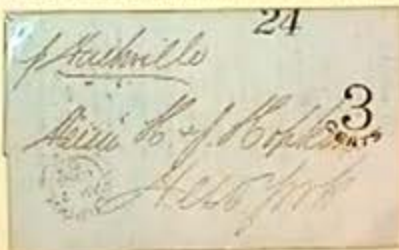 24
p Nashville
3
CENTS
H. & J. Hopkins
New York